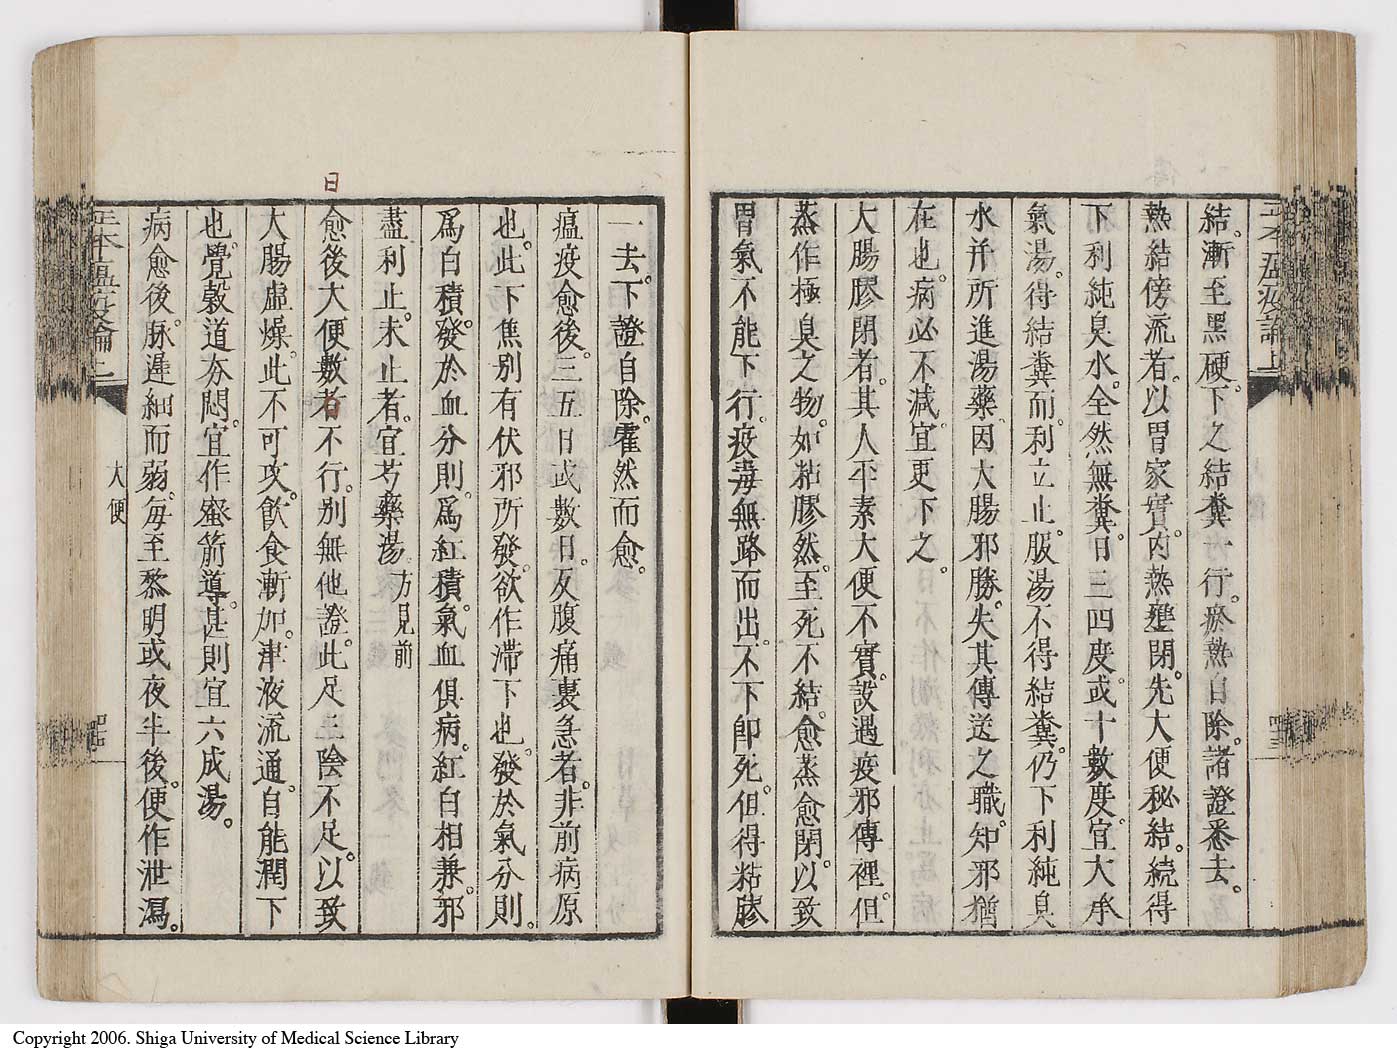 結。漸至黑硬。下之結糞一行。瘀熱自除。諸證悉去。
熱結傍流者。以胃家實。內熱壅閉。先大便秘結。續得
下利純臭水。全然無糞。日三四度。或十數度。宜大承
氣湯。得結糞而利立止。服湯不得結糞。仍下利純臭
水并所進湯藥。因大腸邪勝。失其傳送之職。知邪猶
在也。病必不減。宜更下之。
大腸膠閉者。其人平素大便不實。設遇疫邪傳裡。但
蒸作極臭之物。如粘膠然。至死不結。愈蒸愈閉。以致
胃氣不能下行。疫毒無路而出。不下卽死。但得粘膠
一去。下證自除。霍然而愈。
瘟疫愈後。三五日或數日。反腹痛裏急者。非前病原
也。此下焦別有伏邪所發。欲作滯下也。發於氣分則。
爲白積。發於血分則。爲紅積。氣血俱病。紅白相兼。邪
盡利止。未止者。宜芍藥湯。方見前
日
愈後大便數者不行。別無他證。此足三陰不足。以致
大腸虛燥。此不可攻。飲食漸加。津液流通。自能潤下
也。覺穀道夯悶。宜作蜜箭導。甚則宜六成湯。
病愈後。脉遲細而弱。每至黎明或夜半後。便作泄瀉。
正本瘟疫論 上
大便
Copyright 2006. Shiga University of Medical Science Library